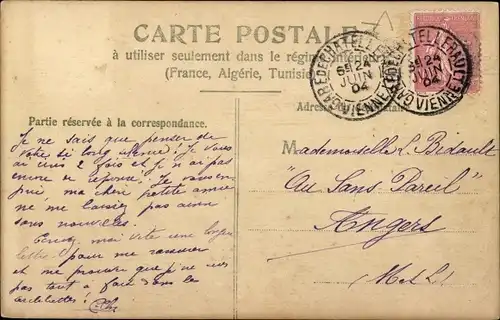 CARTE POSTALE
à utiliser seulement dans le régime intérieur
(France, Algérie, Tunisie)
GARE DE CHATELLERAULT VIENNE
6E 24
JUIN
04
GARE DE CHATELLERAULT VIENNE
6E 24
JUIN
04
Partie réservée à la correspondance.
Je ne sais que penser de
votre si long silence! Je vous
ai écris 2 fois et je n'ai pas
encore de réponse! Je vous en
prie, ma chère petite amie
ne me laissez pas ainsi
sans nouvelles.
moi vite une longue
lettre pour me rassurer
et me prouver que je ne suis
pas tout à fait dans les
oubliettes!
Mademoiselle L. Bidault
"Au Sans-Pareil"
Angers
M et L